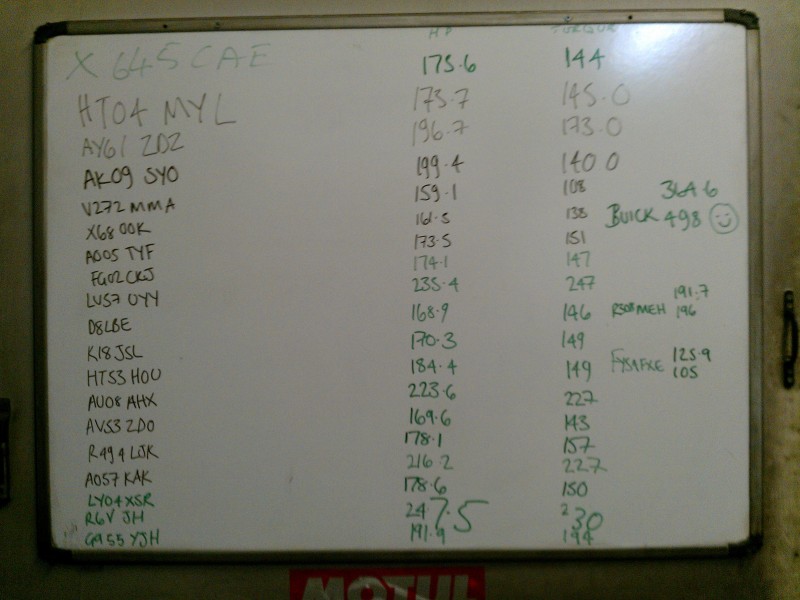 HP TORQUE
X 645 CAE 175.6 144
HT04 MYL 173.7 145.0
AY61 ZDZ 196.7 173.0
AK09 SYO 199.4 140 0
V272 MMA 159.1 108 364.6
X68 OOK 161.5 138 BUICK 498
AO05 TYF 173.5 151
FG02 CKJ 174.1 147
LV57 UYY 235.4 247 191.7
D8LBE 168.9 146 RS08MEH 196
K18 JSL 170.3 149
HT53 HOU 184.4 149 FY51FXE 125.9
AU08 AHX 223.6 227 105
AV53 ZDO 169.6 143
R494 LJK 178.1 157
AO57 KAK 216.2 227
LY04 XSR 178.6 150
R6V JH 247.5 230
GA55 YJH 191.9 194
MOTUL